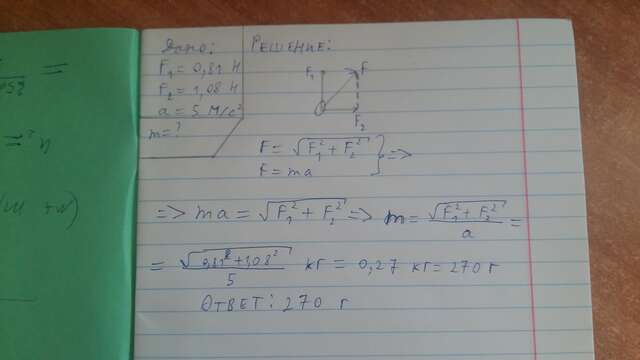 Дано:
F₁ = 0,81 Н
F₂ = 1,08 Н
a = 5 м/с²
m = ?
Решение:
F₁ F
F₂
F = √F₁² + F₂² } =>
F = ma
=> ma = √F₁² + F₂² => m = √F₁² + F₂² / a =
= √0,81² + 1,08² / 5 кг = 0,27 кг = 270 г
Ответ: 270 г